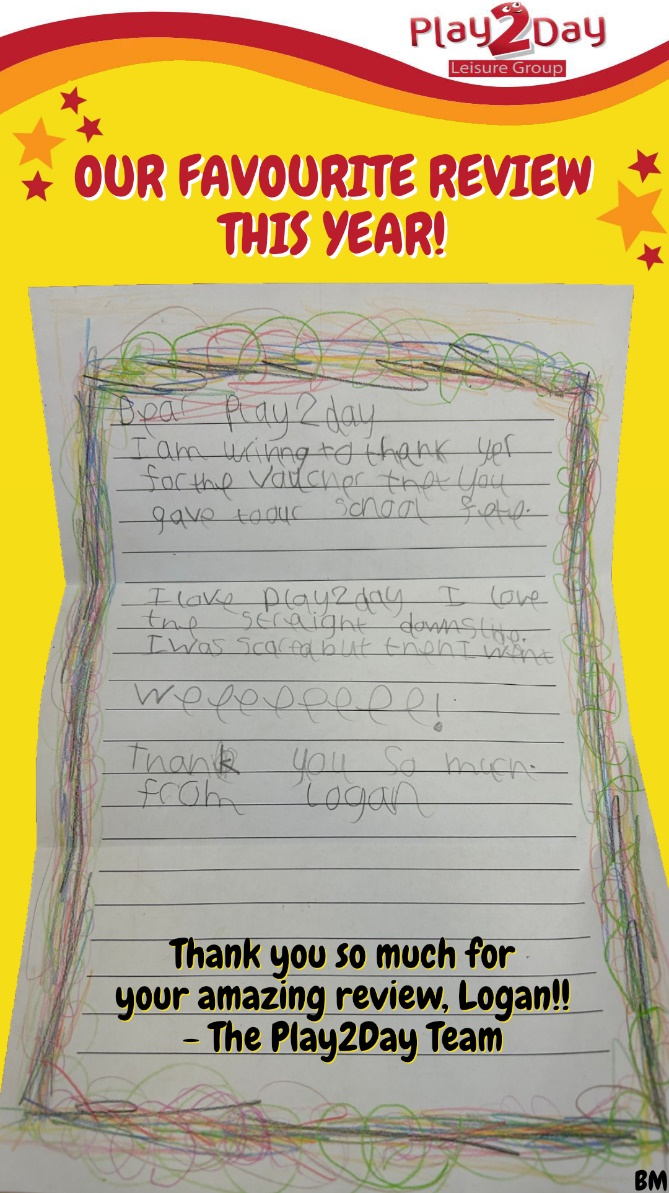 Play2Day
Leisure Group
OUR FAVOURITE REVIEW
THIS YEAR!
Dear Play2day
I am wrining to thank yer
for the Voucher thet You
gave to our school fete.
I love play2day I love
the straight downslip.
I was scared but then I went
weeeeeeee!
Thank you so much.
from Logan
Thank you so much for
your amazing review, Logan!!
- The Play2Day Team
BM